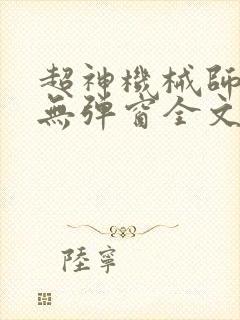 超神機械師
無彈窗全文
陸寧